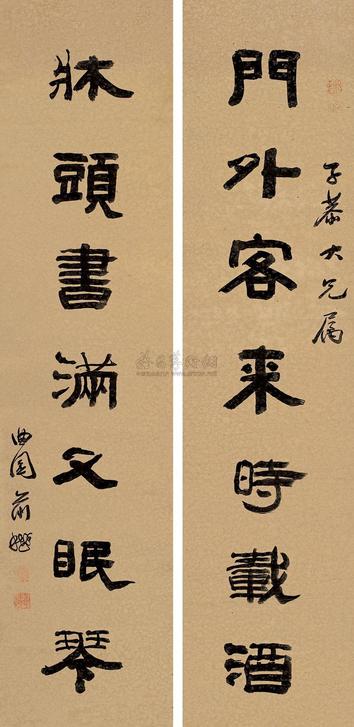 子恭大兄属
門外客来時載酒
牀頭書滿又眠琴
曲園俞樾